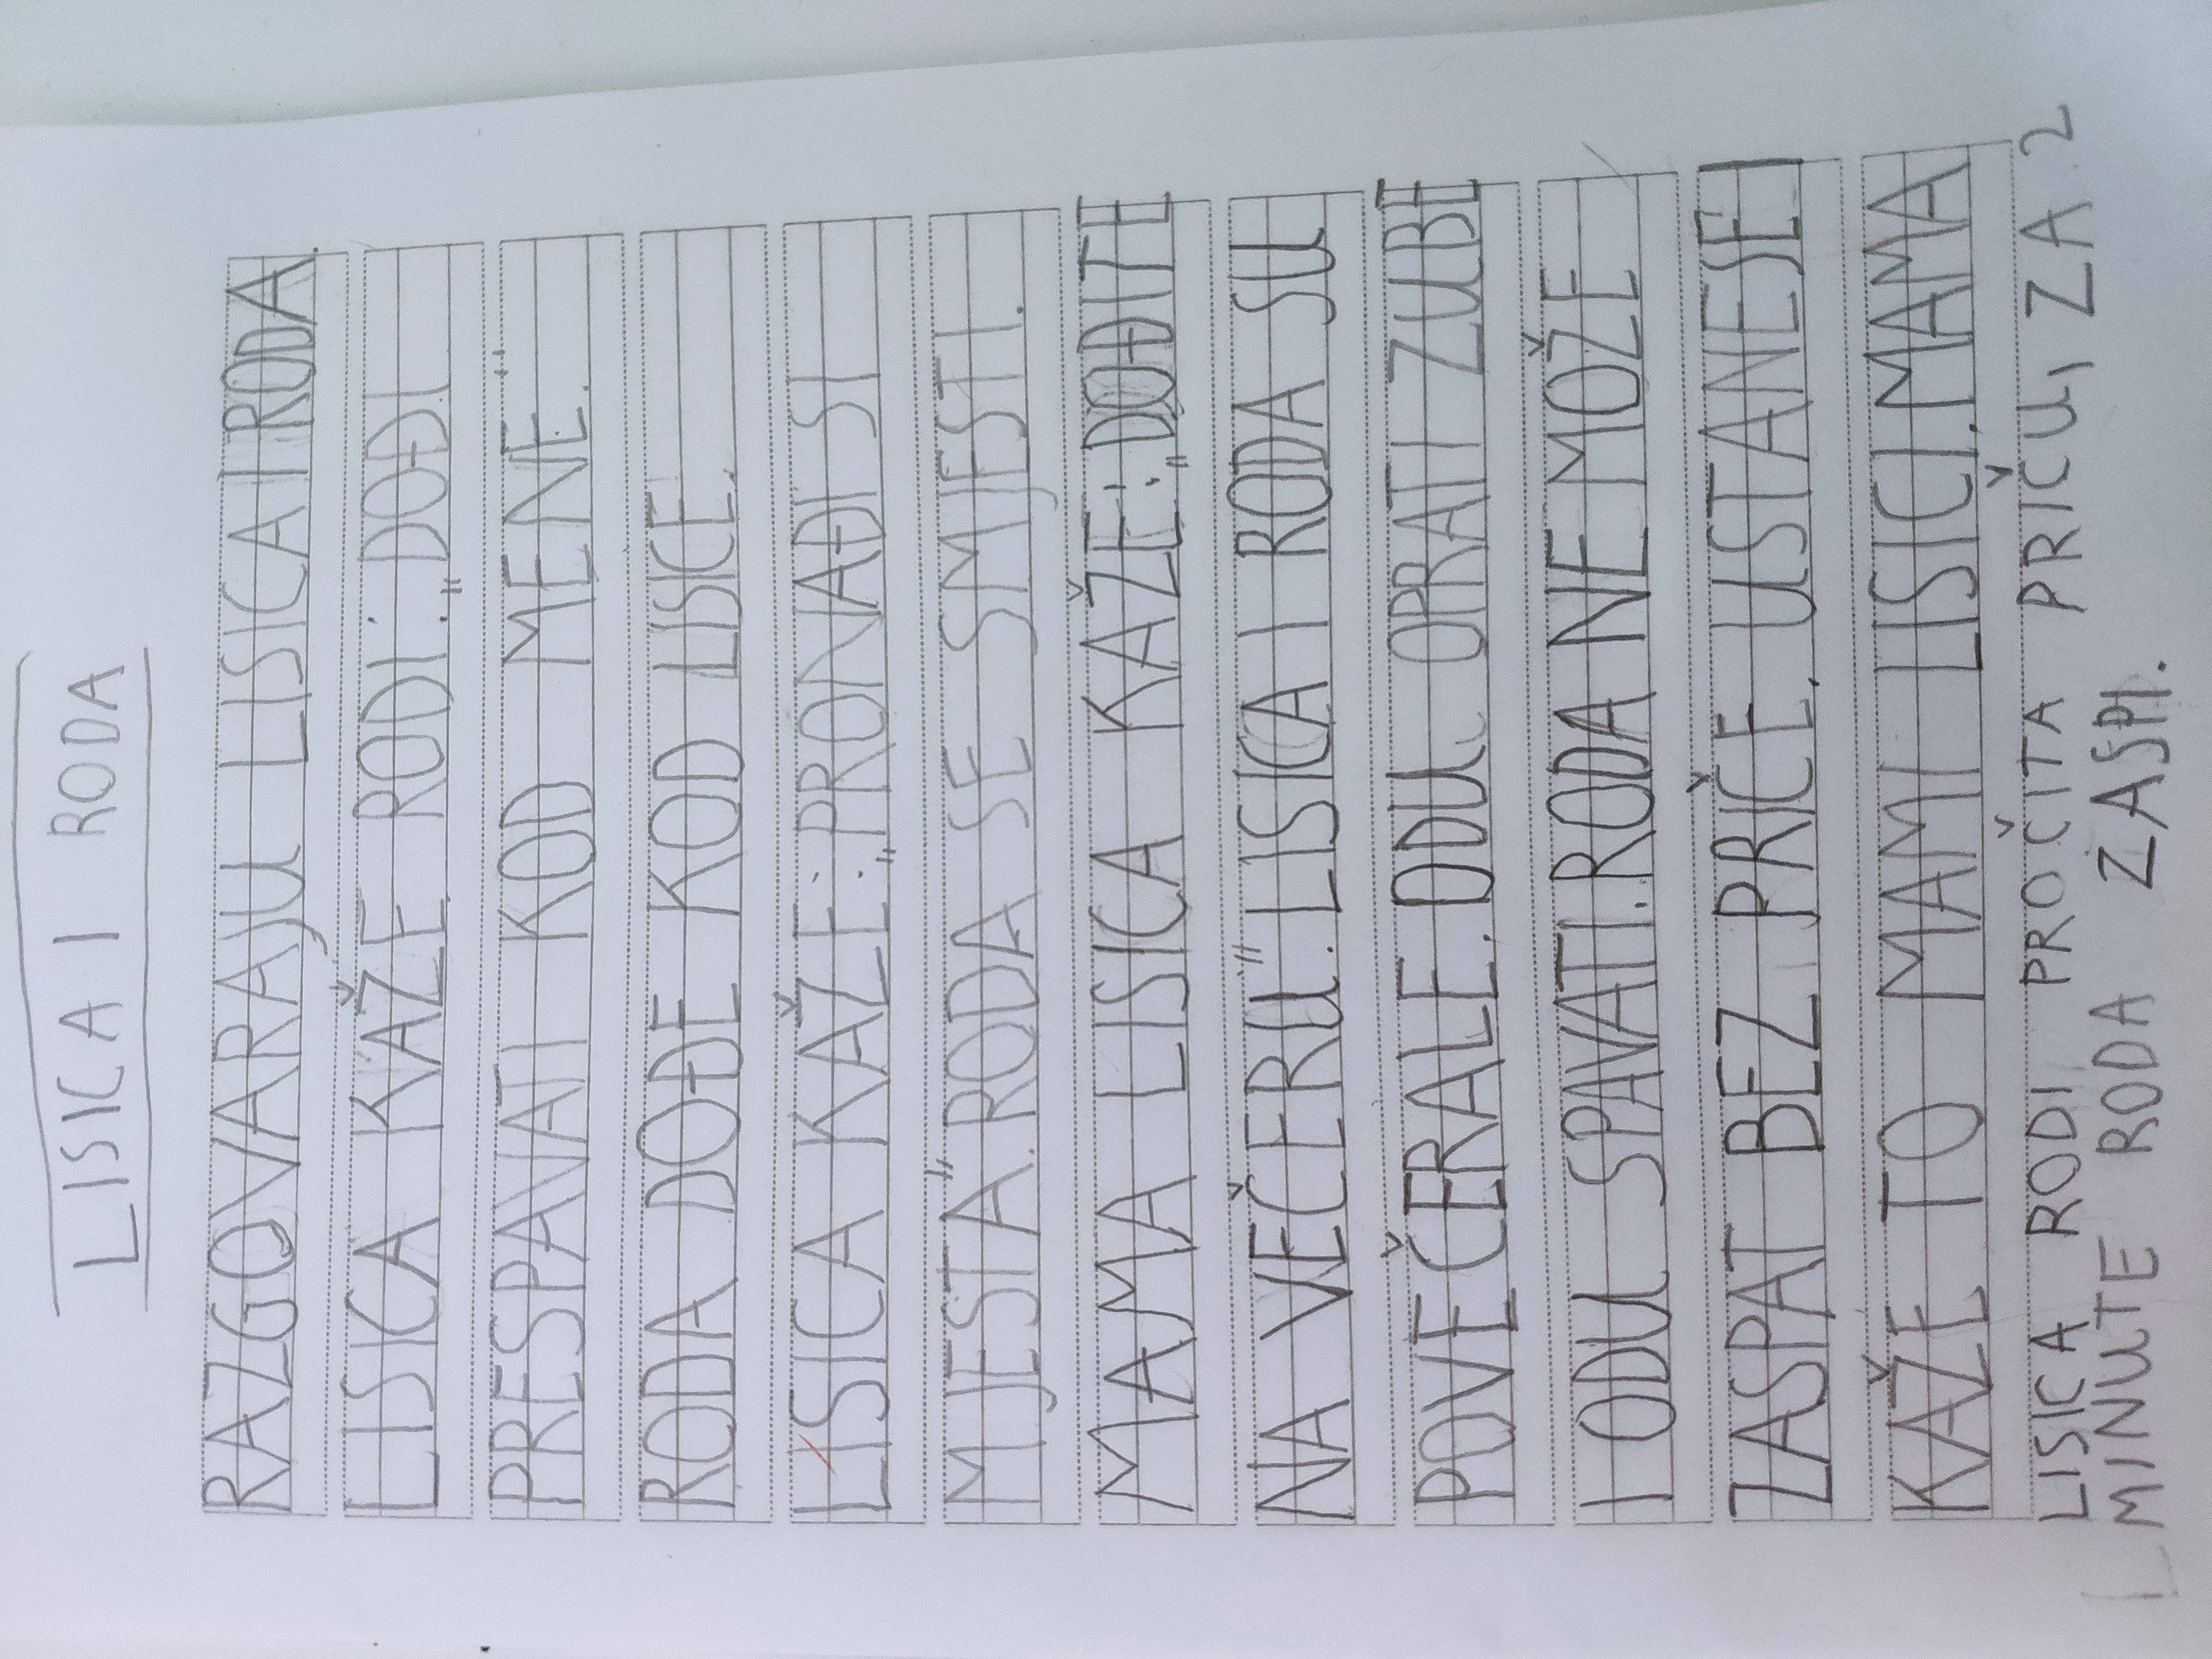 LISICA I RODA
RAZGOVARAJU LISICA I RODA.
LISICA KAŽE RODI: „DOĐI
PRESPAVATI KOD MENE.“
RODA DOĐE KOD LISICE.
LISICA KAŽE: „PRONAĐI SI
MJESTA“. RODA SE SMJESTI.
MAMA LISICA KAŽE: „DOĐITE
NA VEČERU“. LISICA I RODA SU
POVEČERALE. ODU OPRATI ZUBE
I ODU SPAVATI. RODA NE MOŽE
ZASPAT BEZ PRIČE. USTANE SE I
KAŽE TO MAMI LISICI. MAMA
LISICA RODI PROČITA PRIČU, ZA 2
MINUTE RODA ZASPI.